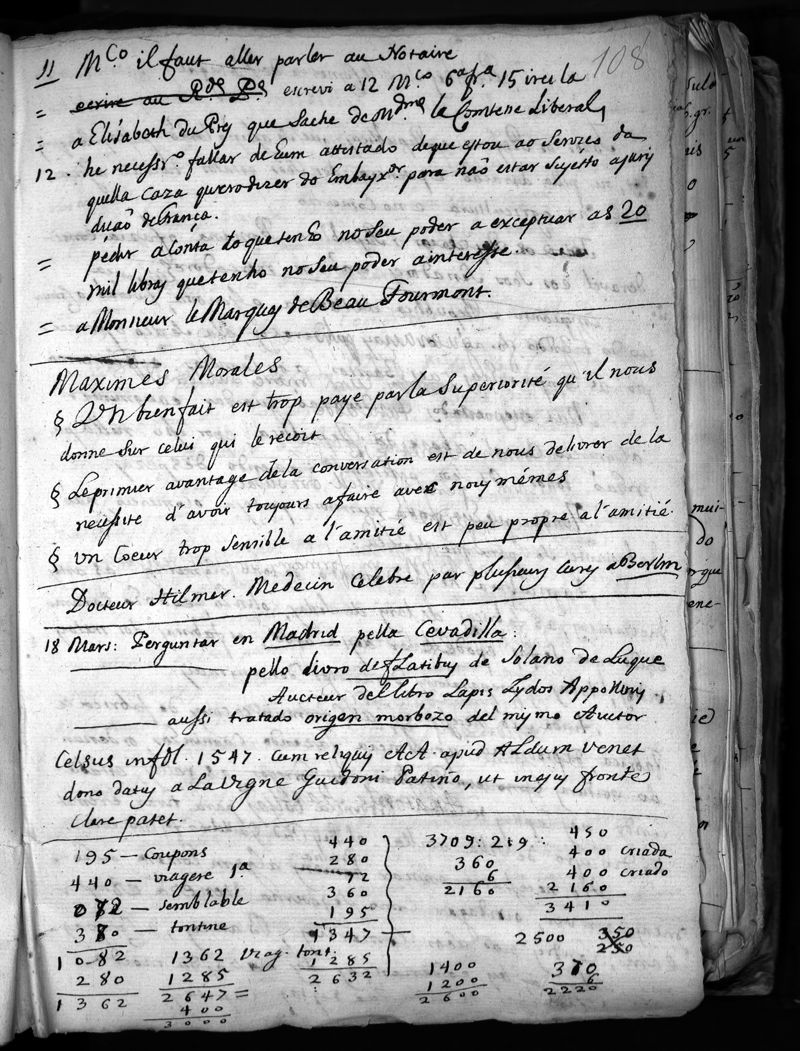 108
11 M.co il faut aller parler au Notaire
= ecrire au R.de P.e escrevi a 12 M.co 6.a f.ra 15 ireis la
= a Elisabeth du Prey que Sache de M.dme la Comtene Liberal,
12. he necessr.o fallar de Eum attestado de que estou ao Servico da
quella Caza quero dizer do Embayx.or para naõ estar Sujeito a juri
diçaõ de França.
= pedir a Conta do que tenho no Seu poder a exceptuar as 20
mil libras que tenho no Seu poder a interesse.
= a Monsieur le Marquis de Beau Fourmont.
Maximes Morales
§ Un bienfait est trop paye par la Superiorité qu'il nous
donne sur celui qui le recoit
§ Le premier avantage de la conversation est de nous delivrer de la
necessité d'avoir toujours a faire avec nous mémes
§ un Coeur trop sensible a l'amitié est peu propre a l'amitié.
Docteur Hilmer. Medecin Celebre par plusieurs Cures a Berlin
18 Mars: Perguntar en Madrid pella Cevadilla.
pello livro de flatibus de Solano de Luque
Aucteur del libro Lapis Lydos Appollinis
aussi tratado origen morbozo del mismo Auctor
Celsus in fol. 1547. Cum reliquis AA. apud ALdum Venet
dono datus a La Vigne Guidoni Patino, ut in ejus fronte
Clare patet.
195 — Coupons
440 — viagere 1.a
072 — semblable
380 — tontine
1082
280
1362
1362 viag. tont.
1285
2647 =
400
3000
440
280
72
360
195
1347
1285
2632
3709: 219:
360
6
2160
1400
1200
2600
450
400 criada
400 criado
2160
3410
2500 350
250
370
6
2220